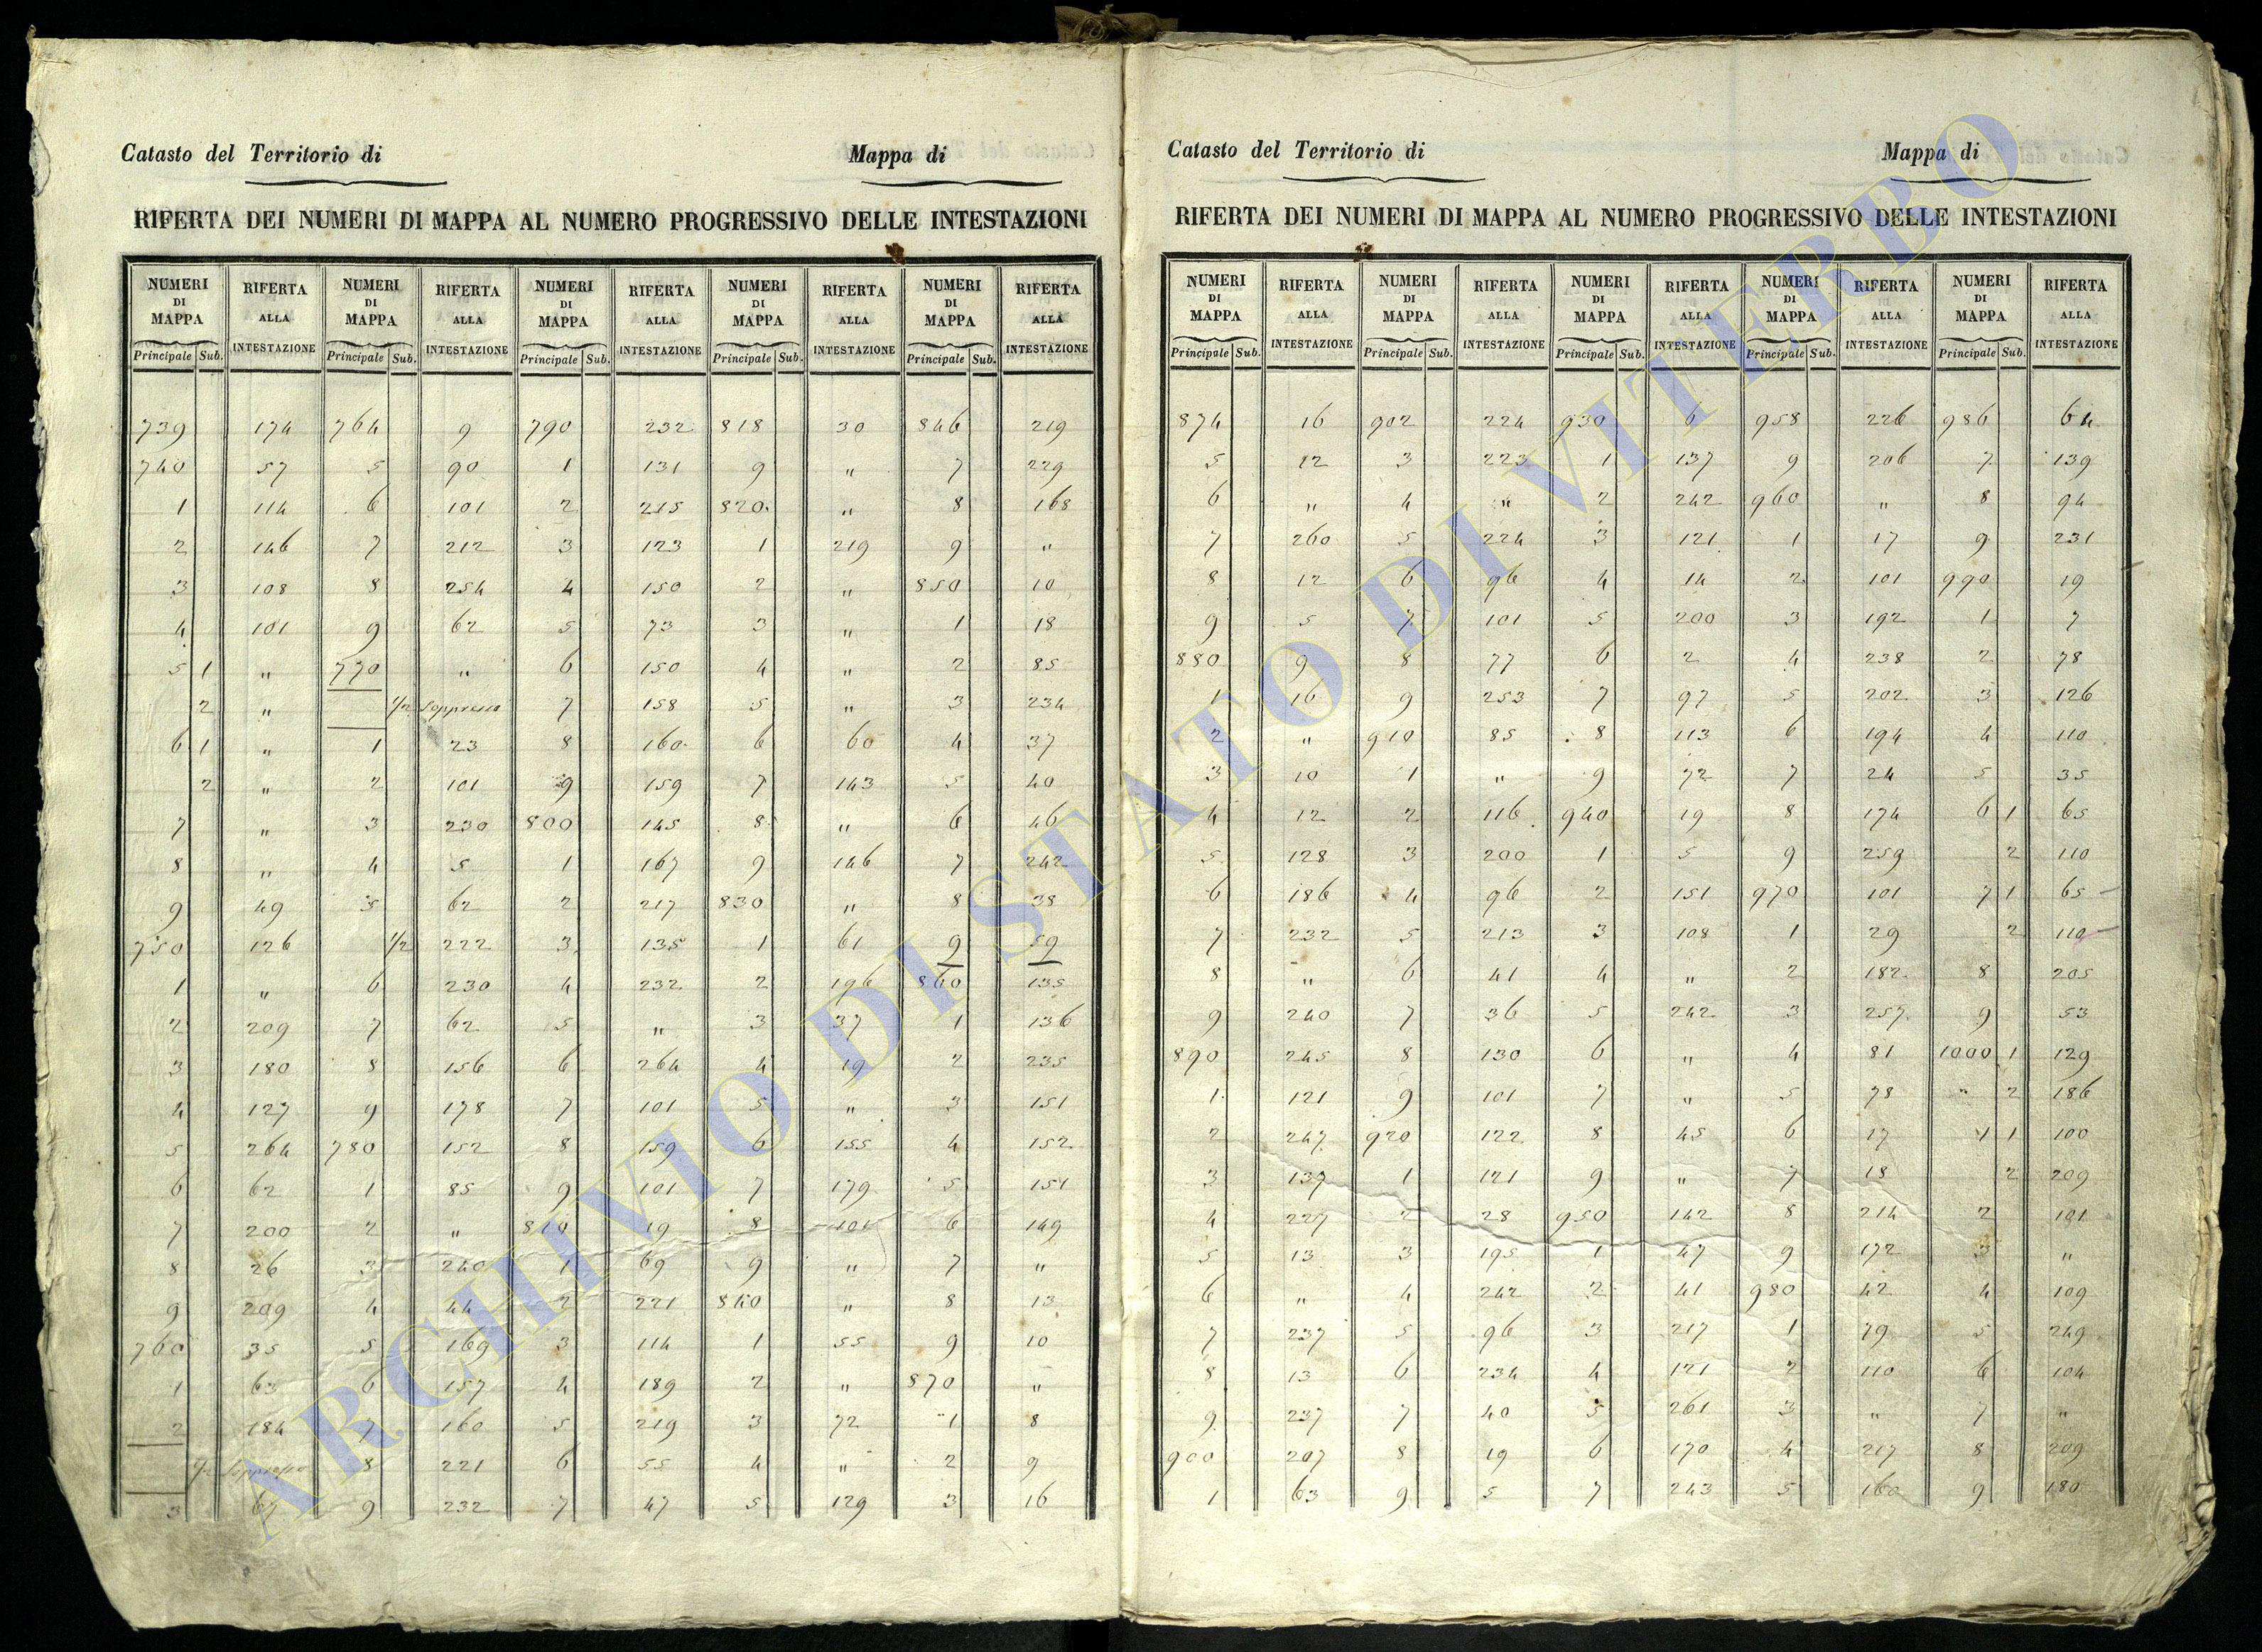 Catasto del Territorio di Mappa di
RIFERTA DEI NUMERI DI MAPPA AL NUMERO PROGRESSIVO DELLE INTESTAZIONI
NUMERI RIFERTA NUMERI RIFERTA NUMERI RIFERTA NUMERI RIFERTA NUMERI RIFERTA
DI ALLA DI ALLA DI ALLA DI ALLA DI ALLA
MAPPA INTESTAZIONE MAPPA INTESTAZIONE MAPPA INTESTAZIONE MAPPA INTESTAZIONE MAPPA INTESTAZIONE
Principale Sub. Principale Sub. Principale Sub. Principale Sub. Principale Sub.
739 174 764 9 790 232 818 30 846 219
740 57 5 90 1 131 9 " 7 229
1 114 6 101 2 215 820 " 8 168
2 146 7 212 3 123 1 219 9 "
3 108 8 254 4 150 2 " 850 10
4 101 9 62 5 73 3 " 1 18
5 1 " 770 " 6 150 4 " 2 85
2 " 1/2 Soppresso 7 158 5 " 3 234
6 1 " 1 23 8 160 6 60 4 37
2 " 2 101 9 159 7 143 5 40
7 " 3 230 800 145 8 " 6 46
8 " 4 5 1 167 9 146 7 242
9 49 5 62 2 217 830 " 8 38
750 126 1/2 222 3 135 1 61 9 59
1 " 6 230 4 232 2 196 860 135
2 209 7 62 5 " 3 37 1 136
3 180 8 156 6 264 4 19 2 235
4 127 9 178 7 101 5 " 3 151
5 264 780 152 8 159 6 155 4 152
6 62 1 85 9 101 7 179 5 151
7 200 2 " 810 19 8 101 6 149
8 26 3 240 1 69 9 " 7 "
9 209 4 44 2 221 840 " 8 13
760 35 5 169 3 114 1 55 9 10
1 63 6 157 4 189 2 " 870 "
2 184 7 160 5 219 3 72 1 8
1/2 Soppresso 8 221 6 55 4 " 2 9
3 67 9 232 7 47 5 129 3 16
Catasto del Territorio di Mappa di
RIFERTA DEI NUMERI DI MAPPA AL NUMERO PROGRESSIVO DELLE INTESTAZIONI
NUMERI RIFERTA NUMERI RIFERTA NUMERI RIFERTA NUMERI RIFERTA NUMERI RIFERTA
DI ALLA DI ALLA DI ALLA DI ALLA DI ALLA
MAPPA INTESTAZIONE MAPPA INTESTAZIONE MAPPA INTESTAZIONE MAPPA INTESTAZIONE MAPPA INTESTAZIONE
Principale Sub. Principale Sub. Principale Sub. Principale Sub. Principale Sub.
874 16 902 224 930 6 958 226 986 64
5 12 3 223 1 137 9 206 7 139
6 " 4 " 2 242 960 " 8 94
7 260 5 224 3 121 1 17 9 231
8 12 6 96 4 14 2 101 990 19
9 5 7 101 5 200 3 192 1 7
880 9 8 77 6 2 4 238 2 78
1 16 9 253 7 97 5 202 3 126
2 " 910 85 8 113 6 194 4 110
3 10 1 " 9 72 7 24 5 35
4 12 2 116 940 19 8 174 6 1 65
5 128 3 200 1 5 9 259 2 110
6 186 4 96 2 151 970 101 7 1 65
7 232 5 213 3 108 1 29 2 110
8 " 6 41 4 " 2 182 8 205
9 240 7 36 5 242 3 257 9 53
890 245 8 130 6 " 4 81 1000 1 129
1 121 9 101 7 " 5 78 " 2 186
2 247 920 122 8 45 6 17 1 1 100
3 137 1 121 9 " 7 18 2 209
4 227 2 28 950 142 8 214 2 191
5 13 3 195 1 47 9 172 3 "
6 " 4 242 2 41 980 42 4 109
7 237 5 96 3 217 1 79 5 249
8 13 6 234 4 121 2 110 6 104
9 237 7 40 5 261 3 " 7 "
900 207 8 19 6 170 4 217 8 209
1 63 9 5 7 243 5 160 9 180
ARCHIVIO DI STATO DI VITERBO